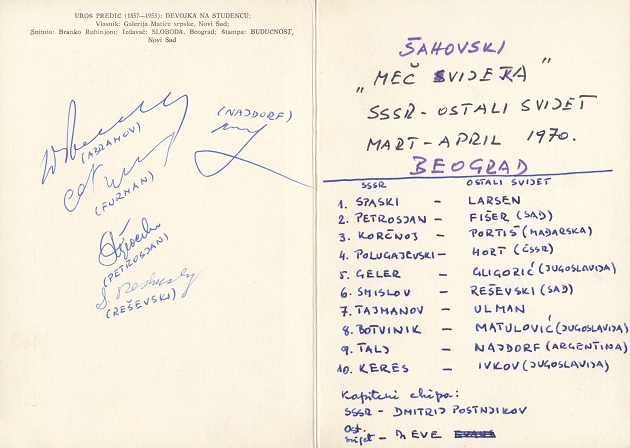 UROŠ PREDIĆ (1857—1953): DEVOJKA NA STUDENCU;
Vlasnik: Galerija Matice srpske, Novi Sad;
Snimio: Branko Rubinjoni; Izdavač: SLOBODA, Beograd; Štampa: BUDUĆNOST,
Novi Sad
(NAJDORF)
(ABRAMOV)
(FURMAN)
(PETROSJAN)
(REŠEVSKI)
ŠAHOVSKI
„MEČ SVIJETA"
SSSR - OSTALI SVIJET
MART - APRIL 1970.
BEOGRAD
SSSR OSTALI SVIJET
1. SPASKI - LARSEN
2. PETROSJAN - FIŠER (SAD)
3. KORČNOJ - PORTIŠ (MAĐARSKA)
4. POLUGAJEVSKI - HORT (ČSSR)
5. GELER - GLIGORIĆ (JUGOSLAVIJA)
6. SMISLOV - REŠEVSKI (SAD)
7. TAJMANOV - ULMAN
8. BOTVINIK - MATULOVIĆ (JUGOSLAVIJA)
9. TALJ - NAJDORF (ARGENTINA)
10. KERES - IVKOV (JUGOSLAVIJA)
Kapiteni ekipa:
SSSR - DMITRIJ POSTNJIKOV
Ost.
svijet - M. EVE